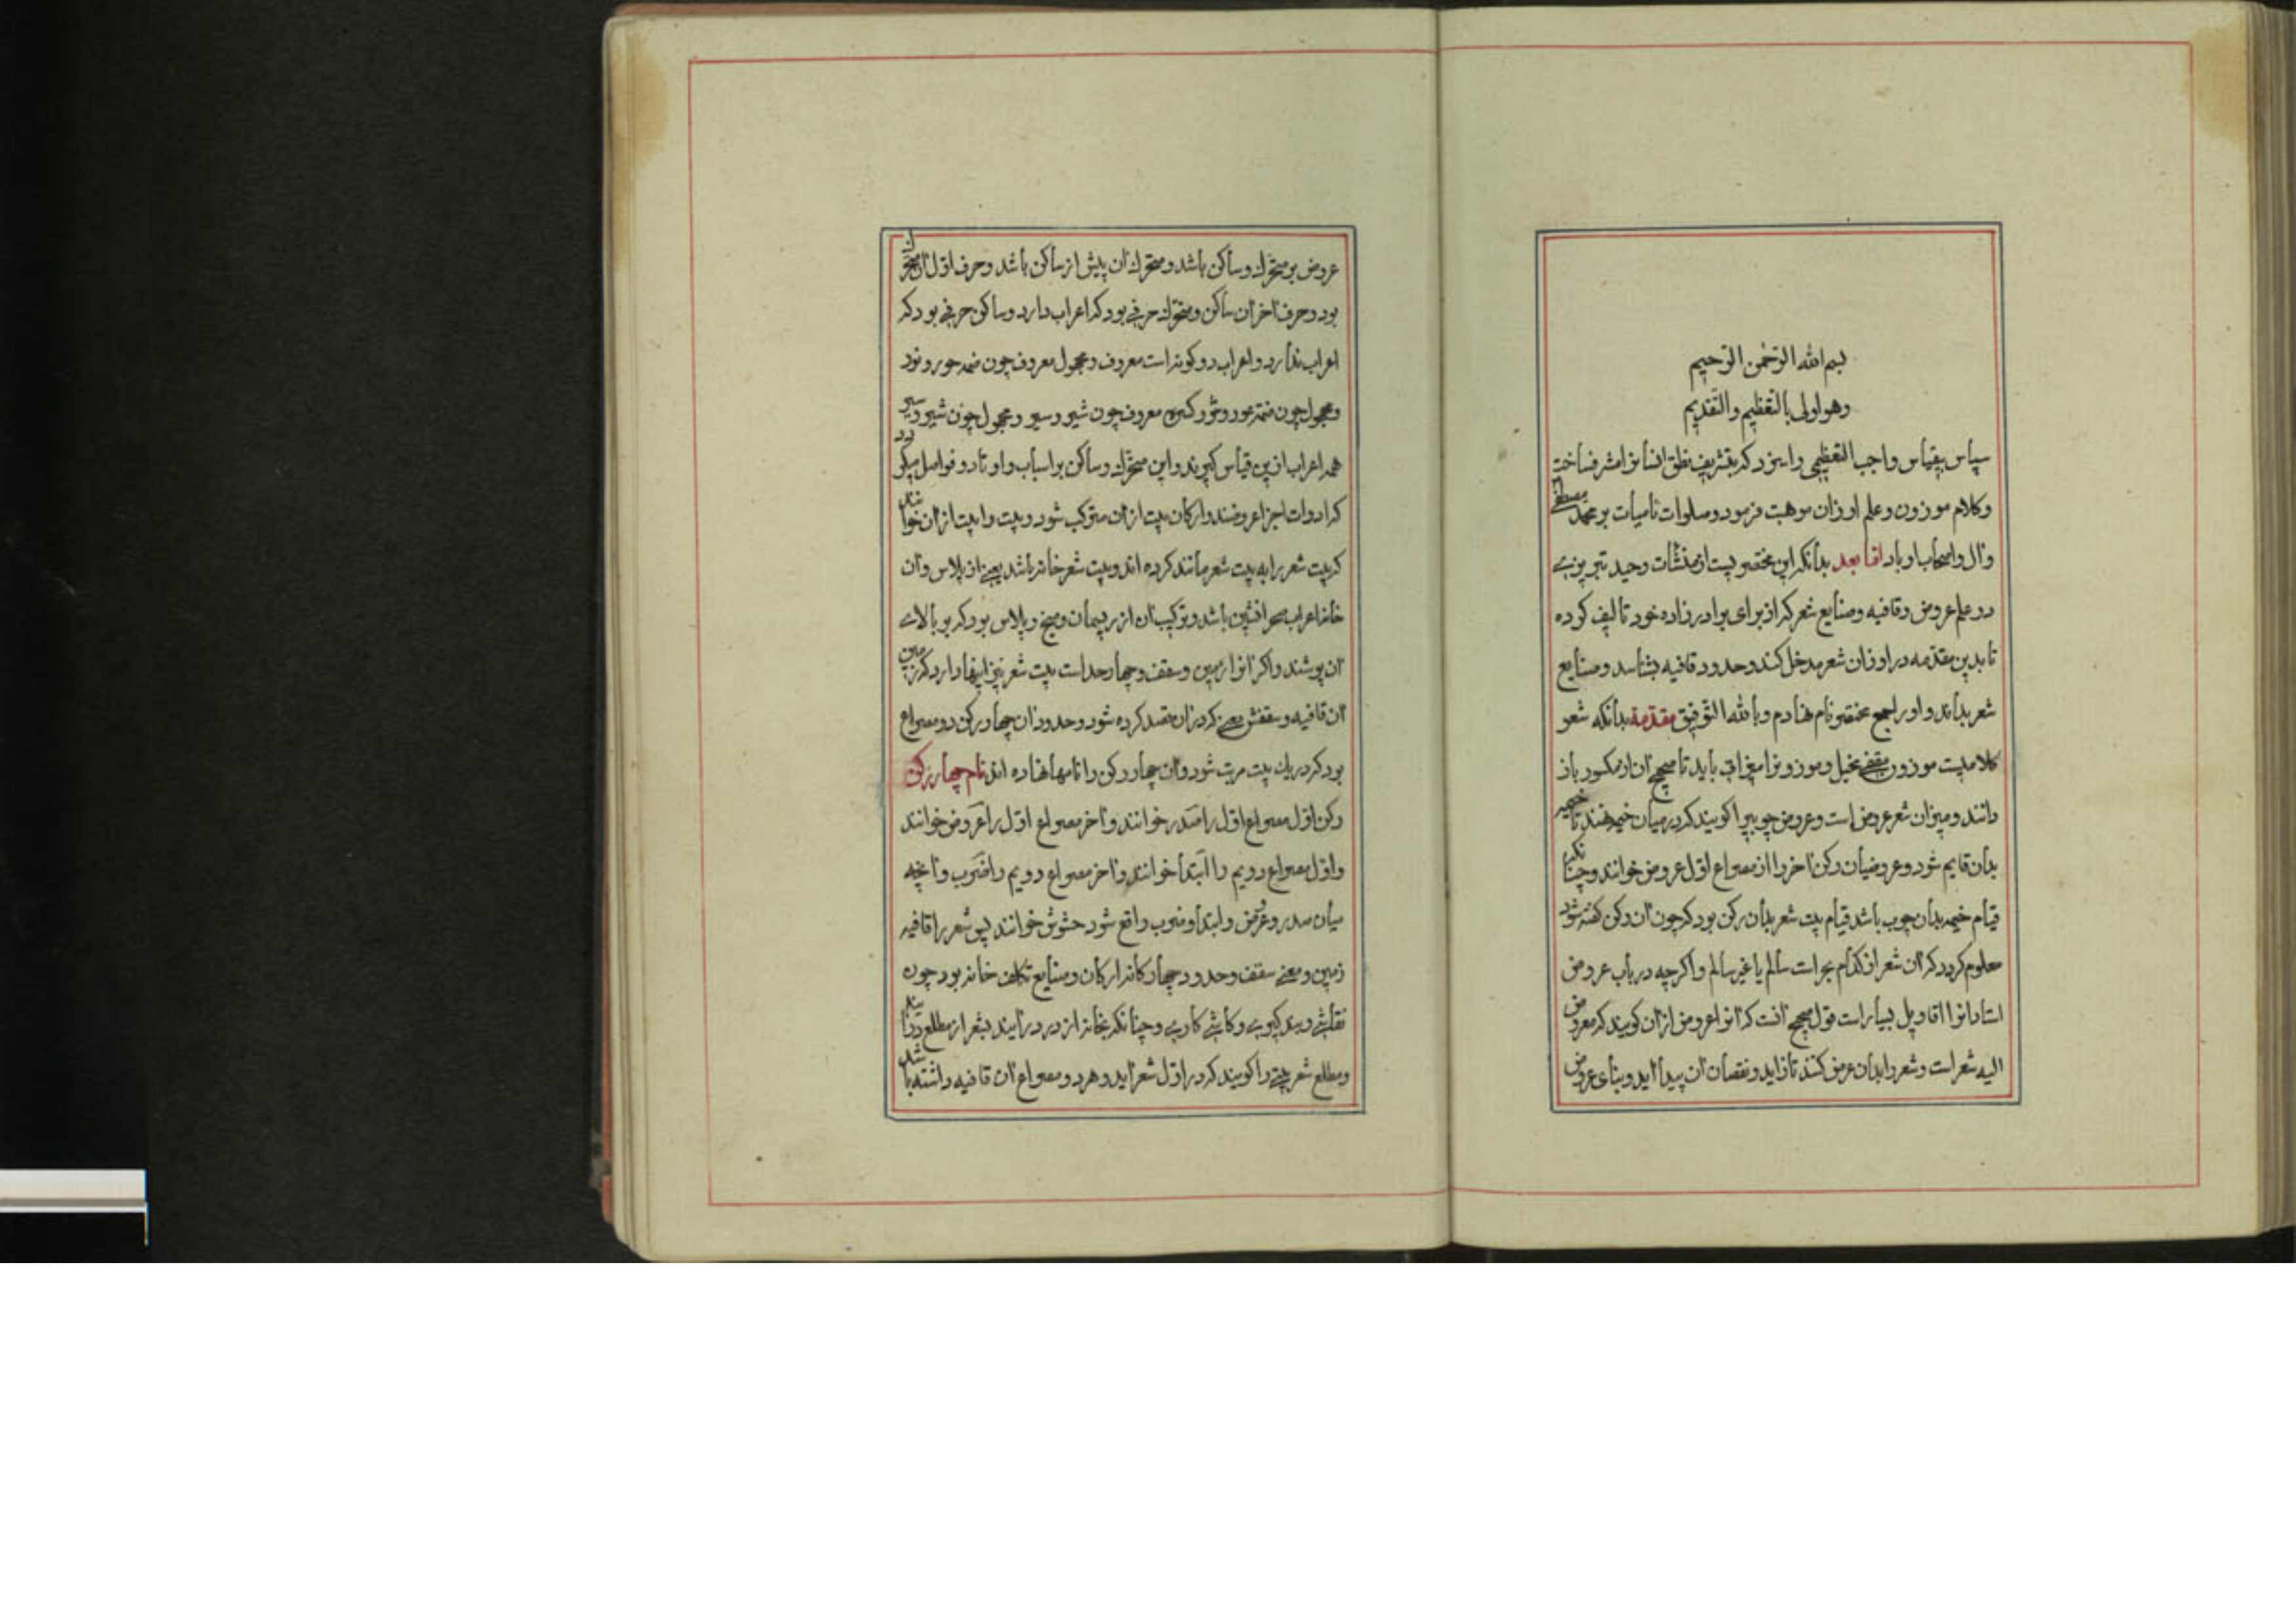 بسم الله الرحمن الرحیم
وهو اولی بالتعظیم والتقدیم
سپاس بیقیاس واجب التعظیمی را سزد که بتشریف نطق انسانرا مشرف ساخت
وکلام موزون وعلم اوزان موهبت فرمود وصلوات نامیات بر محمد مصطفی
وآل واصحاب او باد اما بعد بدانکه این مختصریست از منشآت وحید تبریزی
در علم عروض وقافیه وصنایع شعر که از برای برادرزاده خود تالیف کرده
تا بدین مقدمه در اوزان شعر مدخل کند وحدود قافیه بشناسد وصنایع
شعر بداند واو را جمع مختصر نام نهادم وبالله التوفیق مقدمة بدانکه شعر
کلامیست موزون مقفی مخیل وموزونرا میزانی باید تا صحیح آن از مکسور باز
دانند ومیزان شعر عروض است وعروض چوبیرا کویند که در میان خیمه نهند تا خیمه
بدان قایم شود وعروضیان رکن آخر را از مصراع اول عروض خوانند وچنانکه
قیام خیمه بدان چوب باشد قیام بیت شعر بدان رکن بود که چون آن رکن کفته شود
معلوم کردد که آن شعر از کدام بحر است سالم یا غیر سالم واکر چه در باب عروض
استادانرا اقاویل بسیار است قول صحیح آنست که آنرا عروض از آن کویند که معروض
الیه شعر است وشعر را بدان عرض کنند تا زاید ونقصان آن پیدا آید وبنای عروض
عروض بر متحرک وساکن باشد ومتحرک آن پیش از ساکن باشد وحرف اول آن متحرک
بود وحرف آخر آن ساکن ومتحرک حرفی بود که اعراب دارد وساکن حرفی بود که
اعراب ندارد واعراب دو کونه است معروف ومجهول معروف چون ضمه حور ونور
ومجهول چون ضمه مور وشور کسره معروف چون شیر وسیر ومجهول چون شیر وسیر
همه اعراب ازین قیاس کیرند واین متحرک وساکن بر اسباب واوتاد وفواصل میکردد
که ادوات اجزا عروضند وارکان بیت از آن مترکب شود وبیت را بیت از آن خوانند
که بیت شعر را به بیت شعر مانند کرده اند وبیت شعر خانه باشد یعنی از پلاس وآن
خانه اعراب صحرا نشین باشد وترکیب آن از ریسمان ومیخ وپلاس بود که بر بالای
آن پوشند واکر آنرا زمین وسقف وچهار حد است بیت شعر نیز اینها دارد که زمین
آن قافیه وسقفش معنی که در آن قصد کرده شود وحدود آن چهار رکن دو مصراع
بود که در یک بیت مرتب شود وآن چهار رکن را نامها نهاده اند نام چهار رکن
رکن اول مصراع اول را صدر خوانند وآخر مصراع اول را عروض خوانند
واول مصراع دویم را ابتدا خوانند وآخر مصراع دویم را ضرب وآنچه
میان صدر وعروض وابتدا وضرب واقع شود حشوش خوانند پس شعر را قافیه
زمین ومعنی سقف وحدود چهارکانه ارکان وصنایع تکلف خانه بود چون
نقاشی وبند کیری وکاشی کاری وچنانکه بخانه از در درآیند بشعر از مطلع درآیند
ومطلع شعر بیتی را کویند که در اول شعر آید وهر دو مصراع آن قافیه داشته باشد